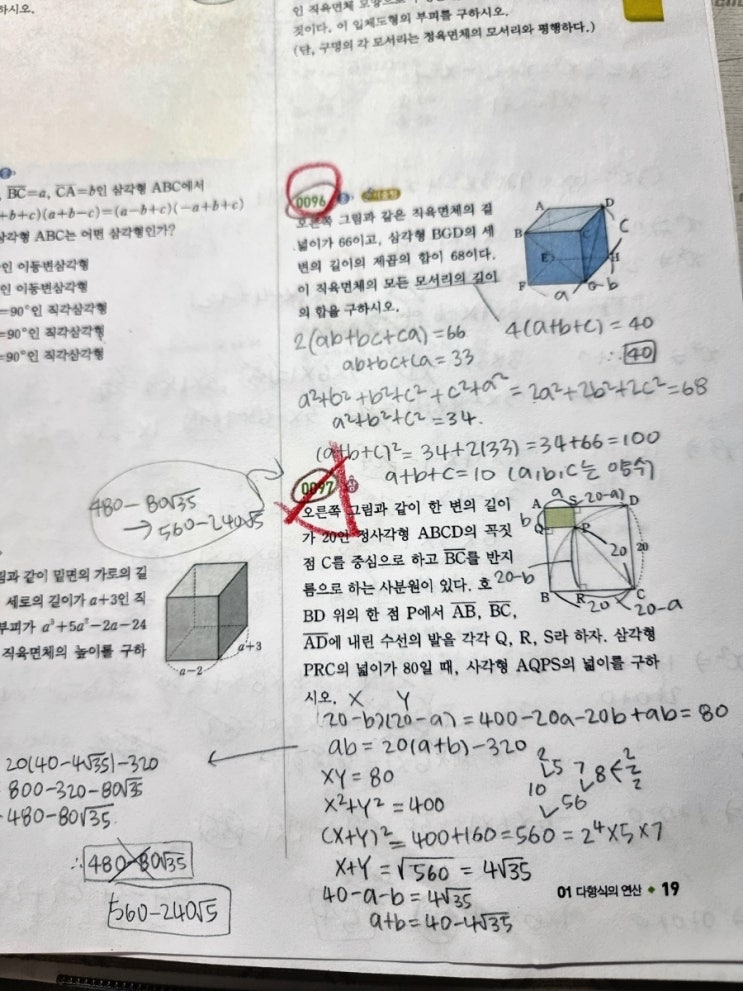 하시오.
인 직육면체 모양으로
짓이다. 이 입체도형의 부피를 구하시오.
(단, 구멍의 각 모서리는 정육면체의 모서리와 평행하다.)
, BC=a, CA=b인 삼각형 ABC에서
+b+c)(a+b-c)=(a-b+c)(-a+b+c)
삼각형 ABC는 어떤 삼각형인가?
인 이등변삼각형
인 이등변삼각형
=90°인 직각삼각형
=90°인 직각삼각형
=90°인 직각삼각형
480-80√35
→560-240√5
림과 같이 밑면의 가로의 길
세로의 길이가 a+3인 직
부피가 a³+5a²-2a-24
직육면체의 높이를 구하
a-2
a+3
20(40-4√35)-320
800-320-80√35
480-80√35
∴ 480-80√35
560-240√5
0096
오른쪽 그림과 같은 직육면체의 겉
넓이가 66이고, 삼각형 BGD의 세
변의 길이의 제곱의 합이 68이다.
이 직육면체의 모든 모서리의 길이
의 합을 구하시오.
A
D
B
C
C
E
H
F
a
b
2(ab+bc+ca)=66
4(a+b+c)=40
ab+bc+ca=33
∴ 40
a²+b²+b²+c²+c²+a²=2a²+2b²+2c²=68
a²+b²+c²=34.
(a+b+c)²=34+2(33)=34+66=100
a+b+c=10 (a,b,c는 양수)
0097 상
오른쪽 그림과 같이 한 변의 길이
가 20인 정사각형 ABCD의 꼭짓
점 C를 중심으로 하고 BC를 반지
름으로 하는 사분원이 있다. 호
BD 위의 한 점 P에서 AB, BC,
AD에 내린 수선의 발을 각각 Q, R, S라 하자. 삼각형
PRC의 넓이가 80일 때, 사각형 AQPS의 넓이를 구하
시오.
a
A
S
20-a)
D
b
Q
P
20
20
20-b
B
R
C
20
20-a
X Y
(20-b)(20-a)=400-20a-20b+ab=80
ab=20(a+b)-320
XY=80
X²+Y²=400
(X+Y)²=400+160=560=2⁴×5×7
X+Y=√560=4√35
40-a-b=4√35
a+b=40-4√35
2
5
7
8
2
2
2
10
56
01 다항식의 연산 ◆ 19